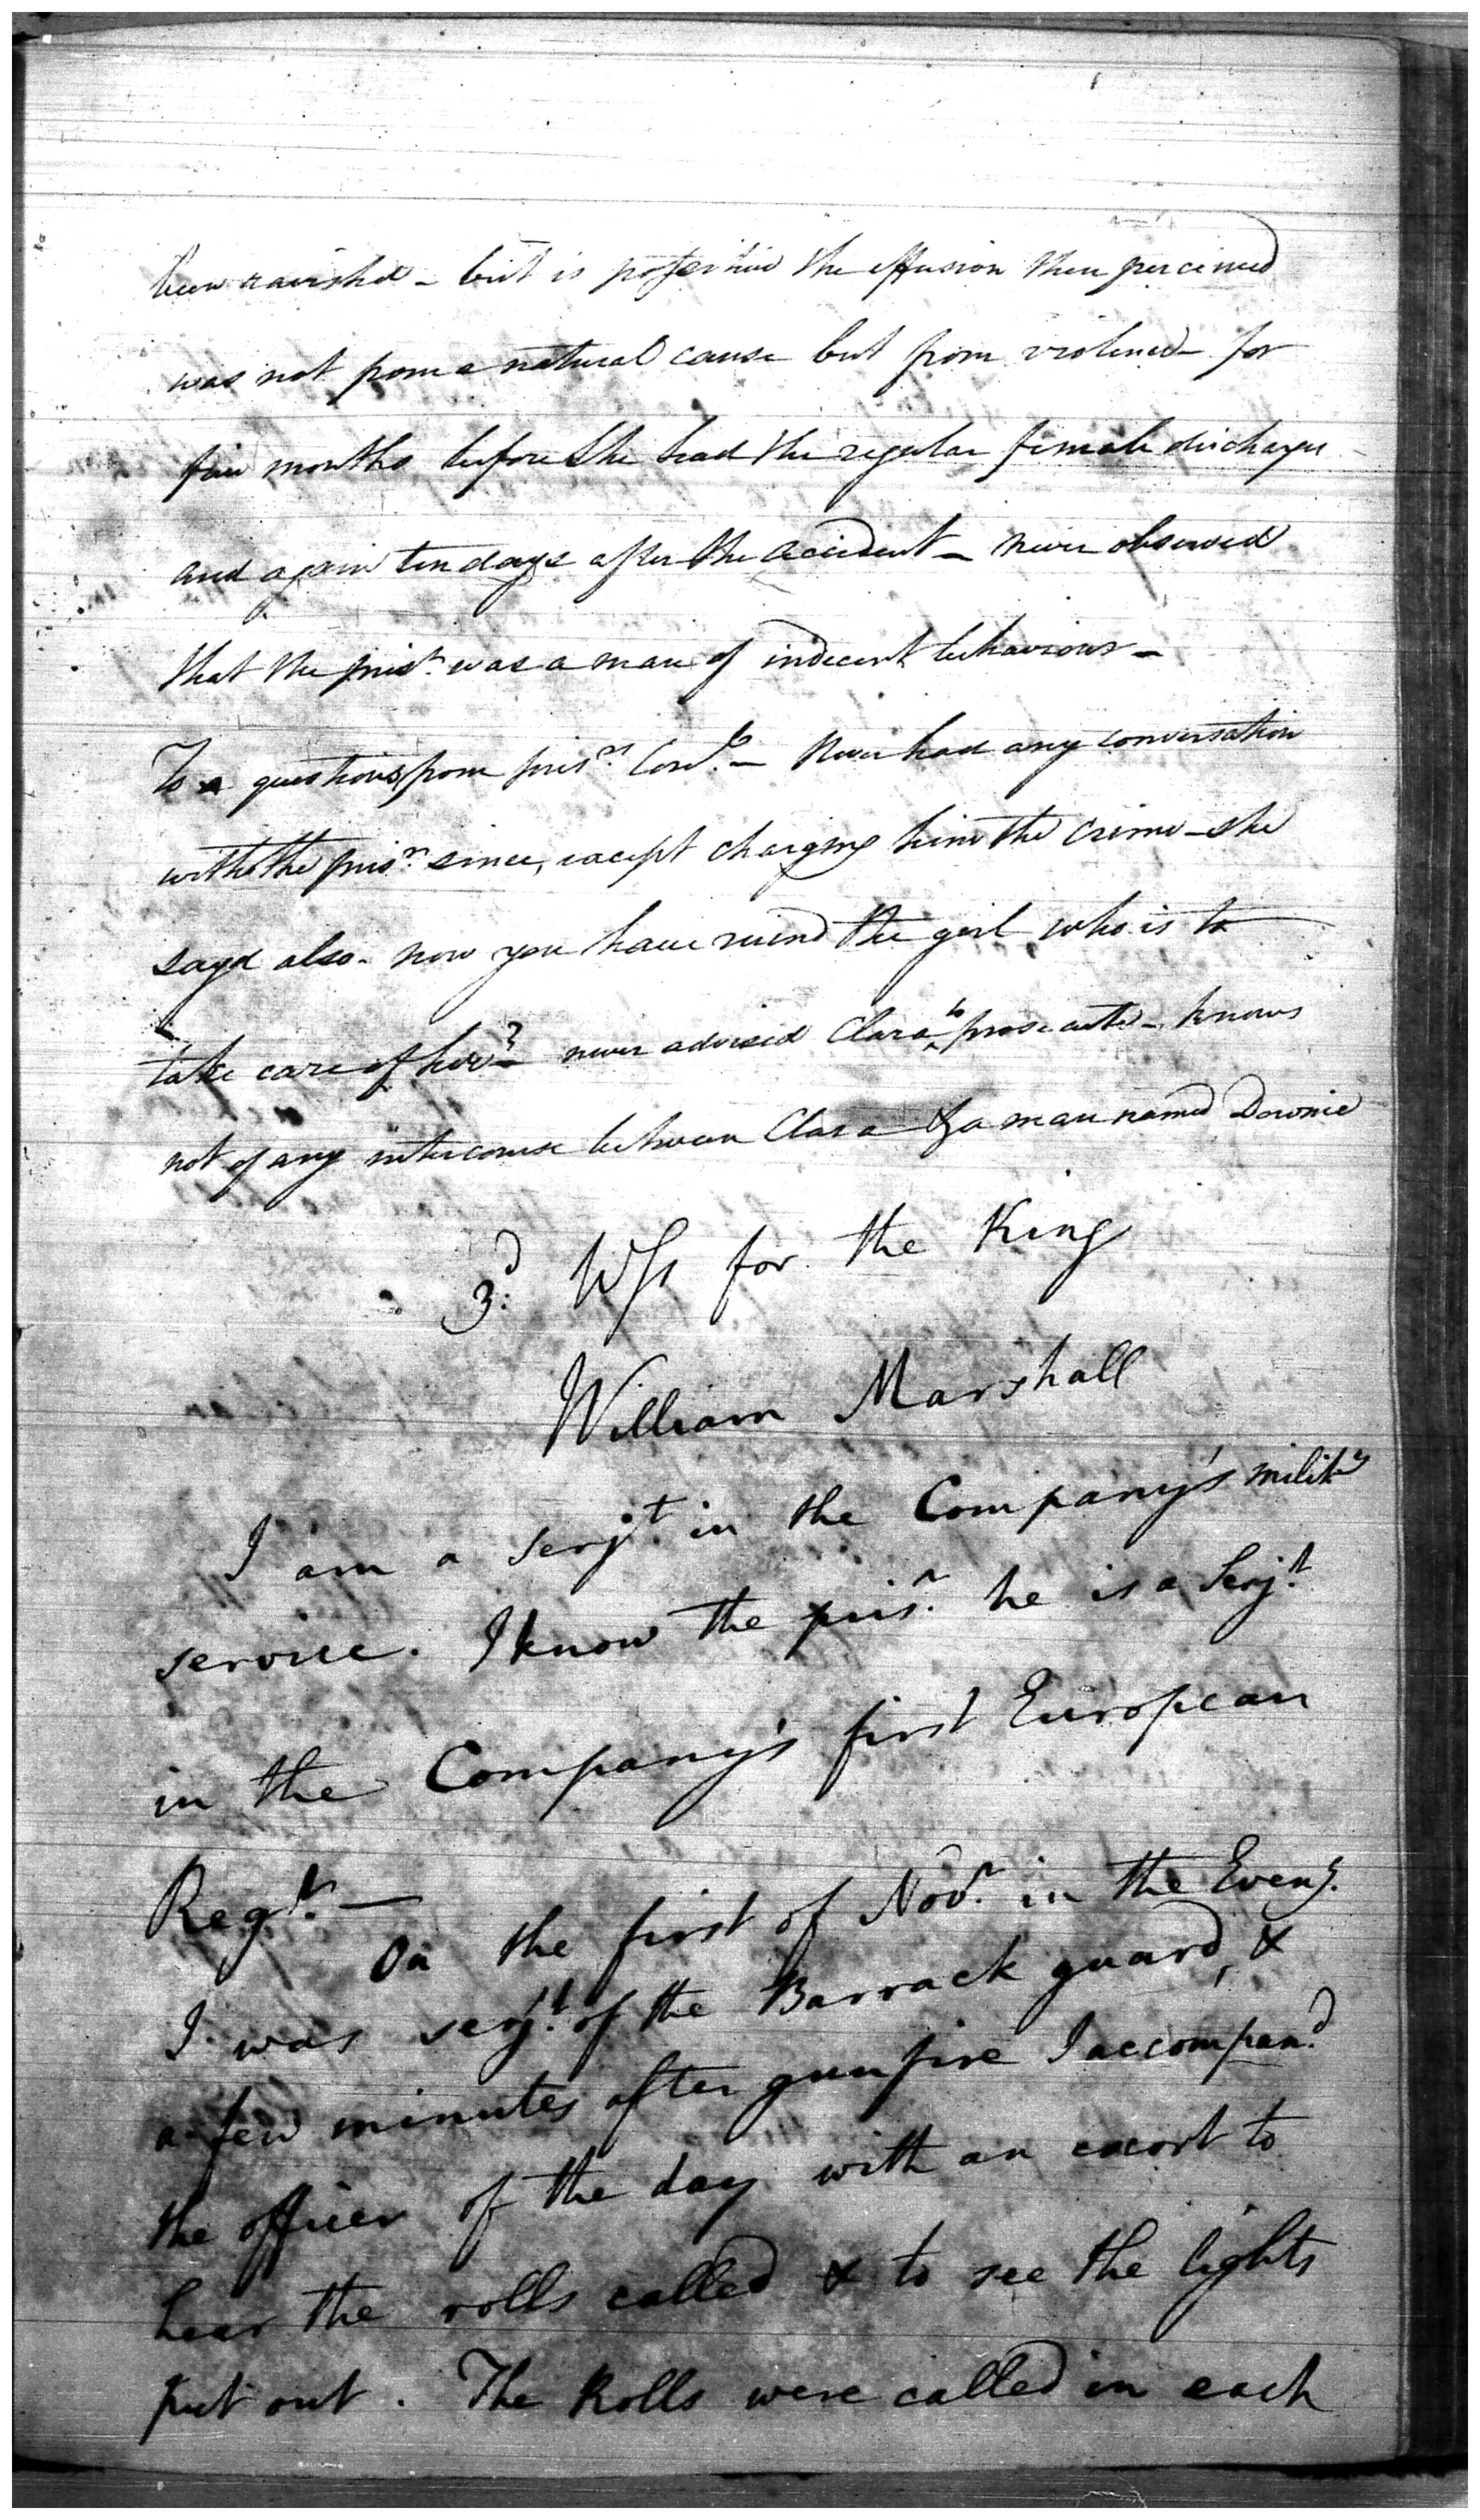 been ravished - but is positive the effusion then perceived
was not from a natural cause but from violence - for
few months before She had the regular female discharges
and again ten days after the accident - never observed
that the prisr. was a man of indecent behaviour -
To questions from prisrs. - Never had any conversation
with the prisr. since, except charging him the crime - she
sayd also - now you have ruind the girl who is to
take care of her? - never advised Clara to prosecute - knows
not of any intercourse between Clara & a man named Downie
3d. Wss for the King
William Marshall
I am a serjt. in the Company's mility
service. I know the prisr. he is a Serjt.
in the Company's first European
Regt. —
On the first of Novr. in the Eveng.
I was serjt. of the Barrack guard, &
a few minutes after gunfire I accompand.
the officer of the day with an escort to
hear the rolls called & to see the lights
put out. The Rolls were called in each